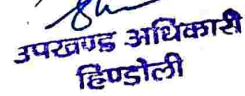 उपखण्ड अधिकारी
हिण्डोली